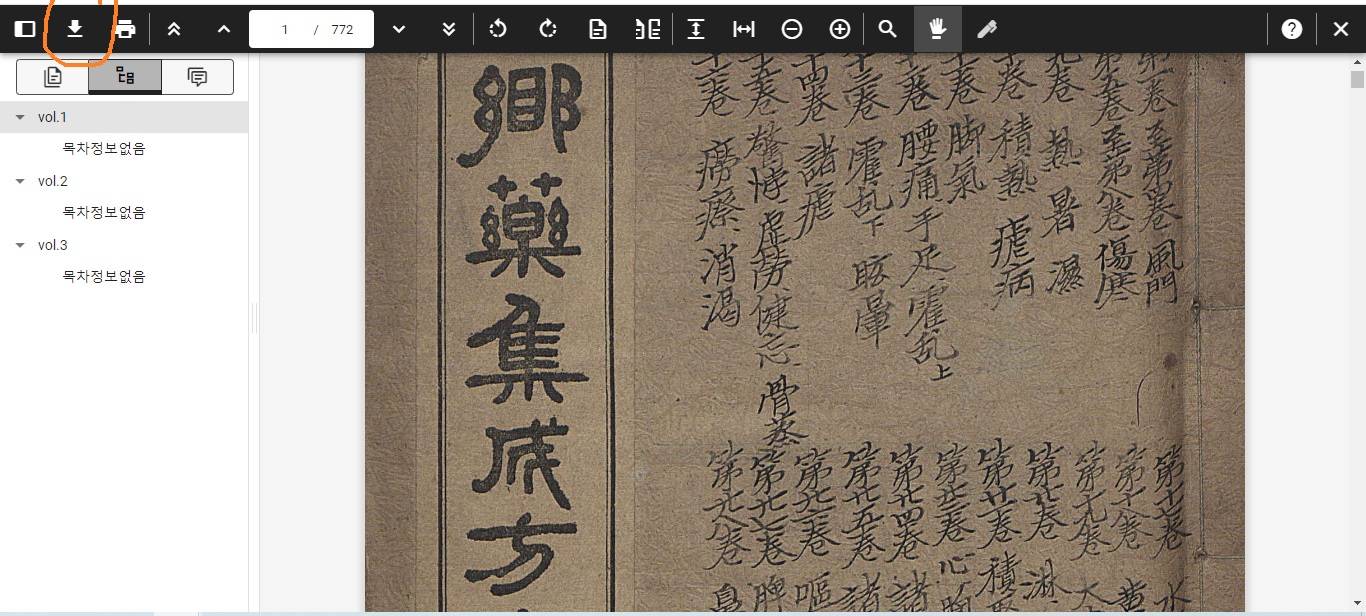 1 / 772
vol.1
목차정보없음
vol.2
목차정보없음
vol.3
목차정보없음
第一卷 至第四卷 風門
第五卷 至第八卷 傷寒
九卷 熱 暑 濕
十卷 積熱 瘧病
十一卷 脚氣
十二卷 腰痛 手足 霍乱上
十三卷 霍乱下 眩暈
十四卷 諸瘧
十五卷 驚悸 虛勞 健忘 骨蒸
十六卷 癆瘵 消渴
第十七卷 水
第十八卷 黃
第十九卷 大
第廿卷 淋
第廿一卷 積聚
第廿三卷 心胸
第廿四卷 諸
第廿五卷 諸
第廿六卷 嘔
第廿七卷 脾
第廿八卷 鼻
鄉藥集成方